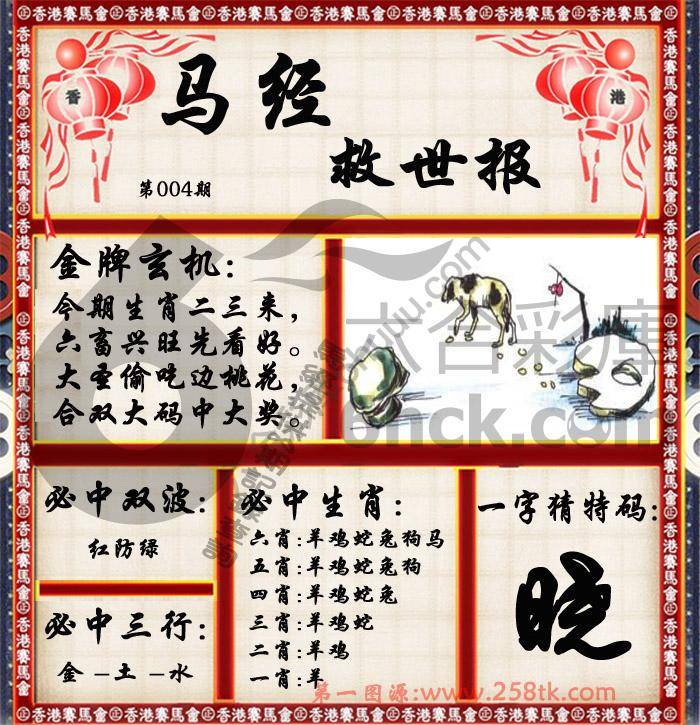 香港賽馬會
香
港
马经
救世报
第004期
金牌玄机:
今期生肖二三来,
六畜兴旺先看好。
大圣偷吃边桃花,
合双大码中大奖。
六合彩庫
必中双波:
红防绿
必中三行:
金－土－水
必中生肖:
六肖:羊鸡蛇兔狗马
五肖:羊鸡蛇兔狗
四肖:羊鸡蛇兔
三肖:羊鸡蛇
二肖:羊鸡
一肖:羊
一字猜特码:
晓
第一图源:www.258tk.com